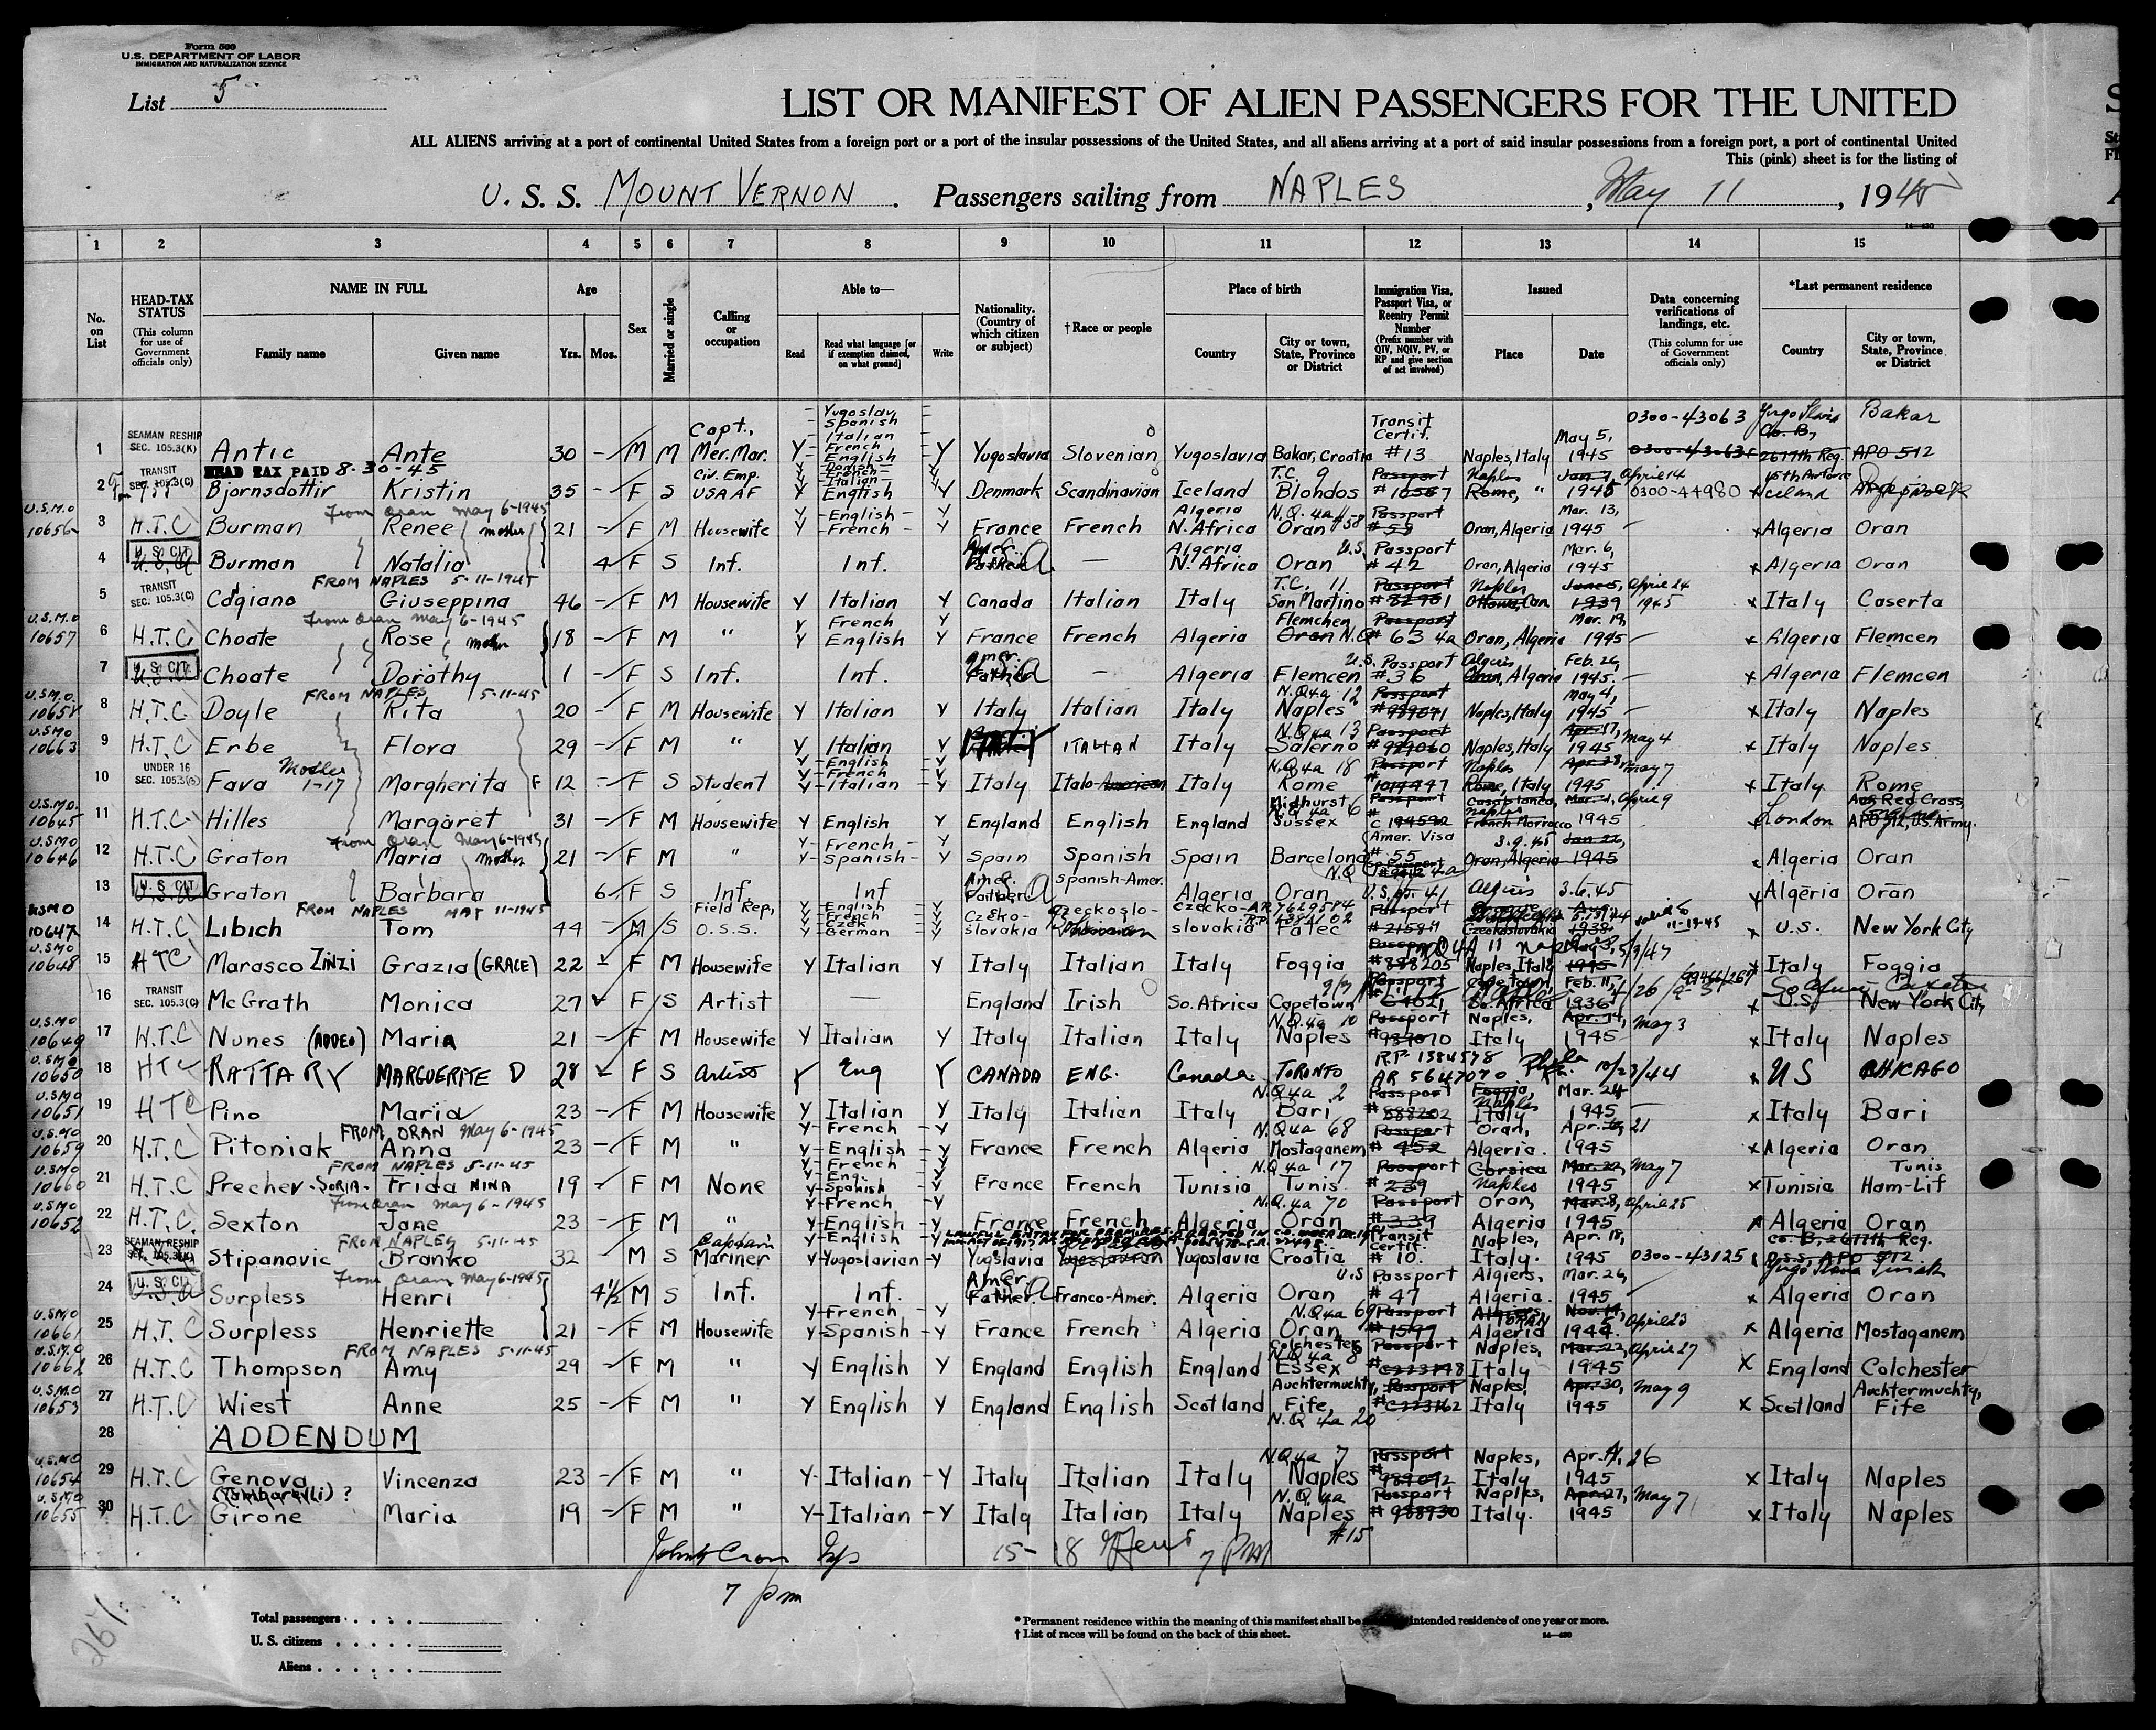 Form 500
U.S. DEPARTMENT OF LABOR
IMMIGRATION AND NATURALIZATION SERVICE
List 5
LIST OR MANIFEST OF ALIEN PASSENGERS FOR THE UNITED
ALL ALIENS arriving at a port of continental United States from a foreign port or a port of the insular possessions of the United States, and all aliens arriving at a port of said insular possessions from a foreign port, a port of continental United
This (pink) sheet is for the listing of
U. S. S. MOUNT VERNON . Passengers sailing from NAPLES , May 11 , 1945
1 2 3 4 5 6 7 8 9 10 11 12 13 14 15
No. on List
HEAD-TAX STATUS (This column for use of Government officials only)
NAME IN FULL Family name Given name
Age Yrs. Mos.
Sex
Married or single
Calling or occupation
Able to— Read Read what language [or if exemption claimed, on what ground] Write
Nationality. (Country of which citizen or subject)
†Race or people
Place of birth Country City or town, State, Province or District
Immigration Visa, Passport Visa, or Reentry Permit Number (Prefix number with QIV, NQIV, PV, or RP and give section of act involved)
Issued Place Date
Data concerning verifications of landings, etc. (This column for use of Government officials only)
*Last permanent residence Country City or town, State, Province or District
1 SEAMAN RESHIP SEC. 105.3(K) Antic Ante 30 - M M Capt., Mer. Mar. Y Yugoslav Spanish Italian French English Y Yugoslavia Slovenian Yugoslavia Bakar, Croatia Transit Certif. #13 Naples, Italy May 5, 1945 0300-43063 Bakar Co. B, 2677th Reg. APO 512
HEAD TAX PAID 8-30-45
2 TRANSIT SEC. 105.3(C) Bjornsdottir Kristin 35 - F S Civ. Emp. USAAF Y Danish French Italian English Y Denmark Scandinavian Iceland Blohdos T.C. 9 Passport Naples Rome, " 1945 April 14 0300-44980 Iceland
From Oran May 6-1945
3 U.S.M.O 10656 H.T.C Burman Renee mother 21 - F M Housewife Y English French Y France French Algeria N. Africa Oran N.Q. 4a #58 Passport #59 Oran, Algeria Mar. 13, 1945 x Algeria Oran
4 U. S. CIT Burman Natalia 4 F S Inf. Inf. Amer. Father — Algeria N. Africa Oran U.S. Passport #42 Oran, Algeria Mar. 6, 1945 x Algeria Oran
FROM NAPLES 5-11-1945
5 TRANSIT SEC. 105.3(C) Cogiano Giuseppina 46 - F M Housewife Y Italian Y Canada Italian Italy San Martino T.C. 11 Passport #82901 Naples Ottawa, Can. June 5, 1939 April 24 1945 x Italy Caserta
From Oran May 6-1945
6 U.S.M.O 10657 H.T.C Choate Rose mother 18 - F M " Y French English Y France French Algeria Flemchen Oran N.Q. Passport #63 4a Oran, Algeria Mar. 19, 1945 x Algeria Flemcen
7 U. S. CIT Choate Dorothy 1 - F S Inf. Inf. Amer. Father - Algeria Flemcen U.S. Passport #36 Algiers Oran, Algeria Feb. 26, 1945 x Algeria Flemcen
FROM NAPLES 5-11-45
8 U.S.M.O. 10658 H.T.C Doyle Rita 20 - F M Housewife Y Italian Y Italy Italian Italy Naples N.Q 4a 12 Passport #989071 Naples, Italy May 4, 1945 x Italy Naples
9 USMO 10663 H.T.C Erbe Flora 29 - F M " Y Italian Y ITALIAN Italy Salerno N.Q 4a 13 Passport #989060 Naples, Italy Apr. 17, 1945 May 4 x Italy Naples
10 UNDER 16 SEC. 105.3(G) Fava Mother 1-17 Margherita F 12 - F S Student Y English French Italian Y Italy Italo-American Italy Rome N.Q. 4a 18 Passport Naples Rome, Italy Apr. 28, 1945 May 7 x Italy Rome
11 U.S.M.O. 10645 H.T.C. Hilles Margaret 31 - F M Housewife Y English Y England English England Midhurst Sussex N.Q 4a 6 Passport C 194592 Casablanca, Naples French Morocco 1945 April 9 London Am. Red Cross, APO 512, U.S. Army.
From Oran May 6-1945
12 USMO 10646 H.T.C Graton Maria mother 21 - F M " Y French Spanish Y Spain Spanish Spain Barcelona Amer. Visa #55 Oran, Algeria 3.9.45 Jan 26, 1945 Algeria Oran
13 U. S. CIT Graton Barbara 6 F S Inf. Inf Amer. Father Spanish-Amer. Algeria Oran U.S. 41 Algiers 3.6.45 Algeria Oran
FROM NAPLES MAY 11-1945
14 USMO 10647 H.T.C Libich Tom 44 - M S Field Rep, O.S.S. Y English French Czek German Y Czeko-slovakia Czeckoslo- Czecko-slovakia Patec AR 7629584 Passport #21584 Czeckoslovakia 1938 11-19-45 x U.S. New York City
15 USMO 10648 HTC Marasco ZINZI Grazia (GRACE) 22 F M Housewife Y Italian Y Italy Italian Italy Foggia NQ4A 11 #888205 Naples, Italy 1945 x Italy Foggia
16 TRANSIT SEC. 105.3(C) McGrath Monica 27 F S Artist — England Irish So. Africa Capetown Passport #64021 Cape Town, So. Africa Feb. 11, 1936 U.S. New York City
17 U.S.M.O 10649 H.T.C Nunes (ADDEO) Maria 21 - F M Housewife Y Italian Y Italy Italian Italy Naples N.Q. 4a 10 Passport #989070 Naples, Italy Apr. 14, 1945 May 3 x Italy Naples
18 U.S.M.O 10650 HTC RATTARY MARGUERITE D 28 F S Artist Y Eng Y CANADA ENG. Canada TORONTO RP 1384578 AR 5647070 Phila Pa. 10/23/44 x US CHICAGO
19 U.S.MO 10651 HTC Pino Maria 23 - F M Housewife Y Italian Y Italy Italian Italy Bari N.Q 4a 2 Passport #888202 Foggia, Naples Italy Mar. 24 1945 x Italy Bari
FROM ORAN May 6-1945
20 U.S.MO 10659 H.T.C Pitoniak Anna 23 - F M " Y French English Y France French Algeria Mostaganem N.Q 4a 68 Passport #452 Oran, Algeria. Apr. 21 1945 x Algeria Oran
FROM NAPLES 5-11-45
21 USMO 10660 H.T.C Precher-SORIA- Frida NINA 19 - F M None Y French Eng. Spanish Y France French Tunisia Tunis N.Q 4a 17 Passport #239 Corsica Naples Mar. 22, 1945 May 7 x Tunisia Tunis Ham-Lif
From Oran May 6-1945
22 USMO 10652 H.T.C. Sexton Jane 23 - F M " Y French English Y France French Algeria Oran N.Q. 4a 70 Passport #339 Oran, Algeria Mar. 8, 1945 April 25 x Algeria Oran
FROM NAPLES 5-11-45
23 SEAMAN RESHIP Stipanovic Branko 32 M S Captain Mariner Y English Yugoslavian Y Yugslavia Yugoslavia Croatia Transit Certif. #10. Naples, Italy. Apr. 18, 1945 0300-43125 Co. B, 2677th Reg. O.S.S., APO 512
From Oran May 6-1945
24 U. S. CIT Surpless Henri 4½ M S Inf. Inf. Amer. Father. Franco-Amer. Algeria Oran U.S Passport #47 Algiers, Algeria. Mar. 26, 1945 x Algeria Oran
25 U.S.M.O 10661 H.T.C Surpless Henriette 21 - F M Housewife Y French Spanish Y France French Algeria Oran N.Q 4a 69 Passport #1597 Algiers, ORAN Algeria Nov. 14, 1944 April 23 x Algeria Mostaganem
FROM NAPLES 5-11-45
26 U.S.M.O 10662 H.T.C Thompson Amy 29 - F M " Y English Y England English England Colchester Essex N.Q 4a 8 Passport #C223748 Naples, Italy Mar. 22, 1945 April 27 X England Colchester
27 U.S.M.O 10653 H.T.C Wiest Anne 25 - F M " Y English Y England English Scotland Auchtermuchty, Fife, N.Q 4a 20 Passport #C223162 Naples, Italy Apr. 30, 1945 May 9 X Scotland Auchtermuchty, Fife
28 ADDENDUM
29 U.S.MO 10654 H.T.C Genova Vincenza 23 - F M " Y- Italian -Y Italy Italian Italy Naples N.Q 4a 7 Passport #989092 Naples, Italy Apr. 26 1945 x Italy Naples
30 U.SMO 10655 H.T.C Girone Maria 19 - F M " Y-Italian-Y Italy Italian Italy Naples N.Q. 4a #15 Passport #988930 Naples, Italy. Apr. 27, 1945 May 7 x Italy Naples
7 PM
7 pm
Total passengers
U. S. citizens
Aliens
* Permanent residence within the meaning of this manifest shall be intended residence of one year or more.
† List of races will be found on the back of this sheet.